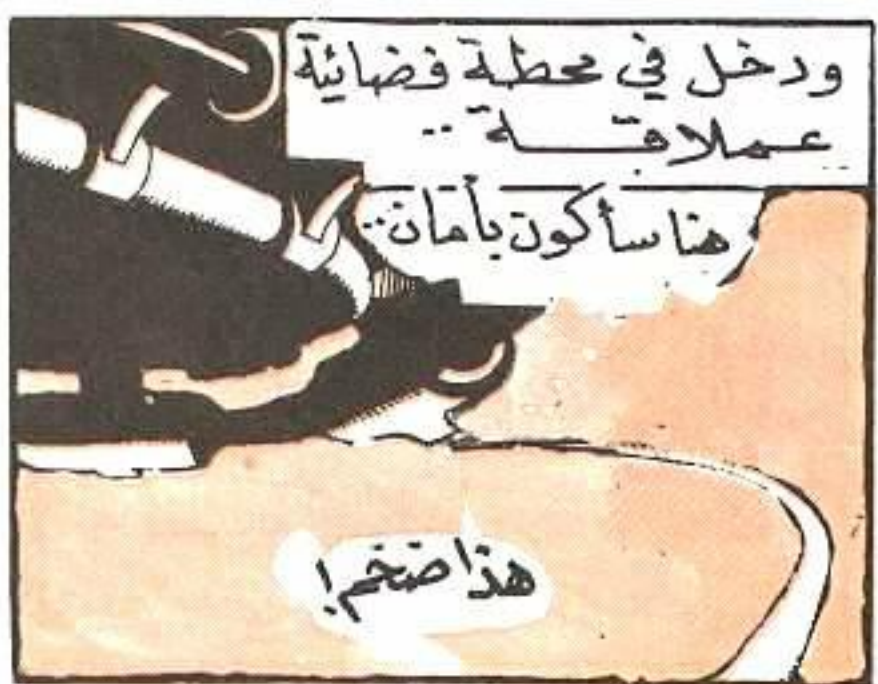 ودخل في محطة فضائية
عملاقة ..
هنا سأكون بأمان ..
هذا ضخم !